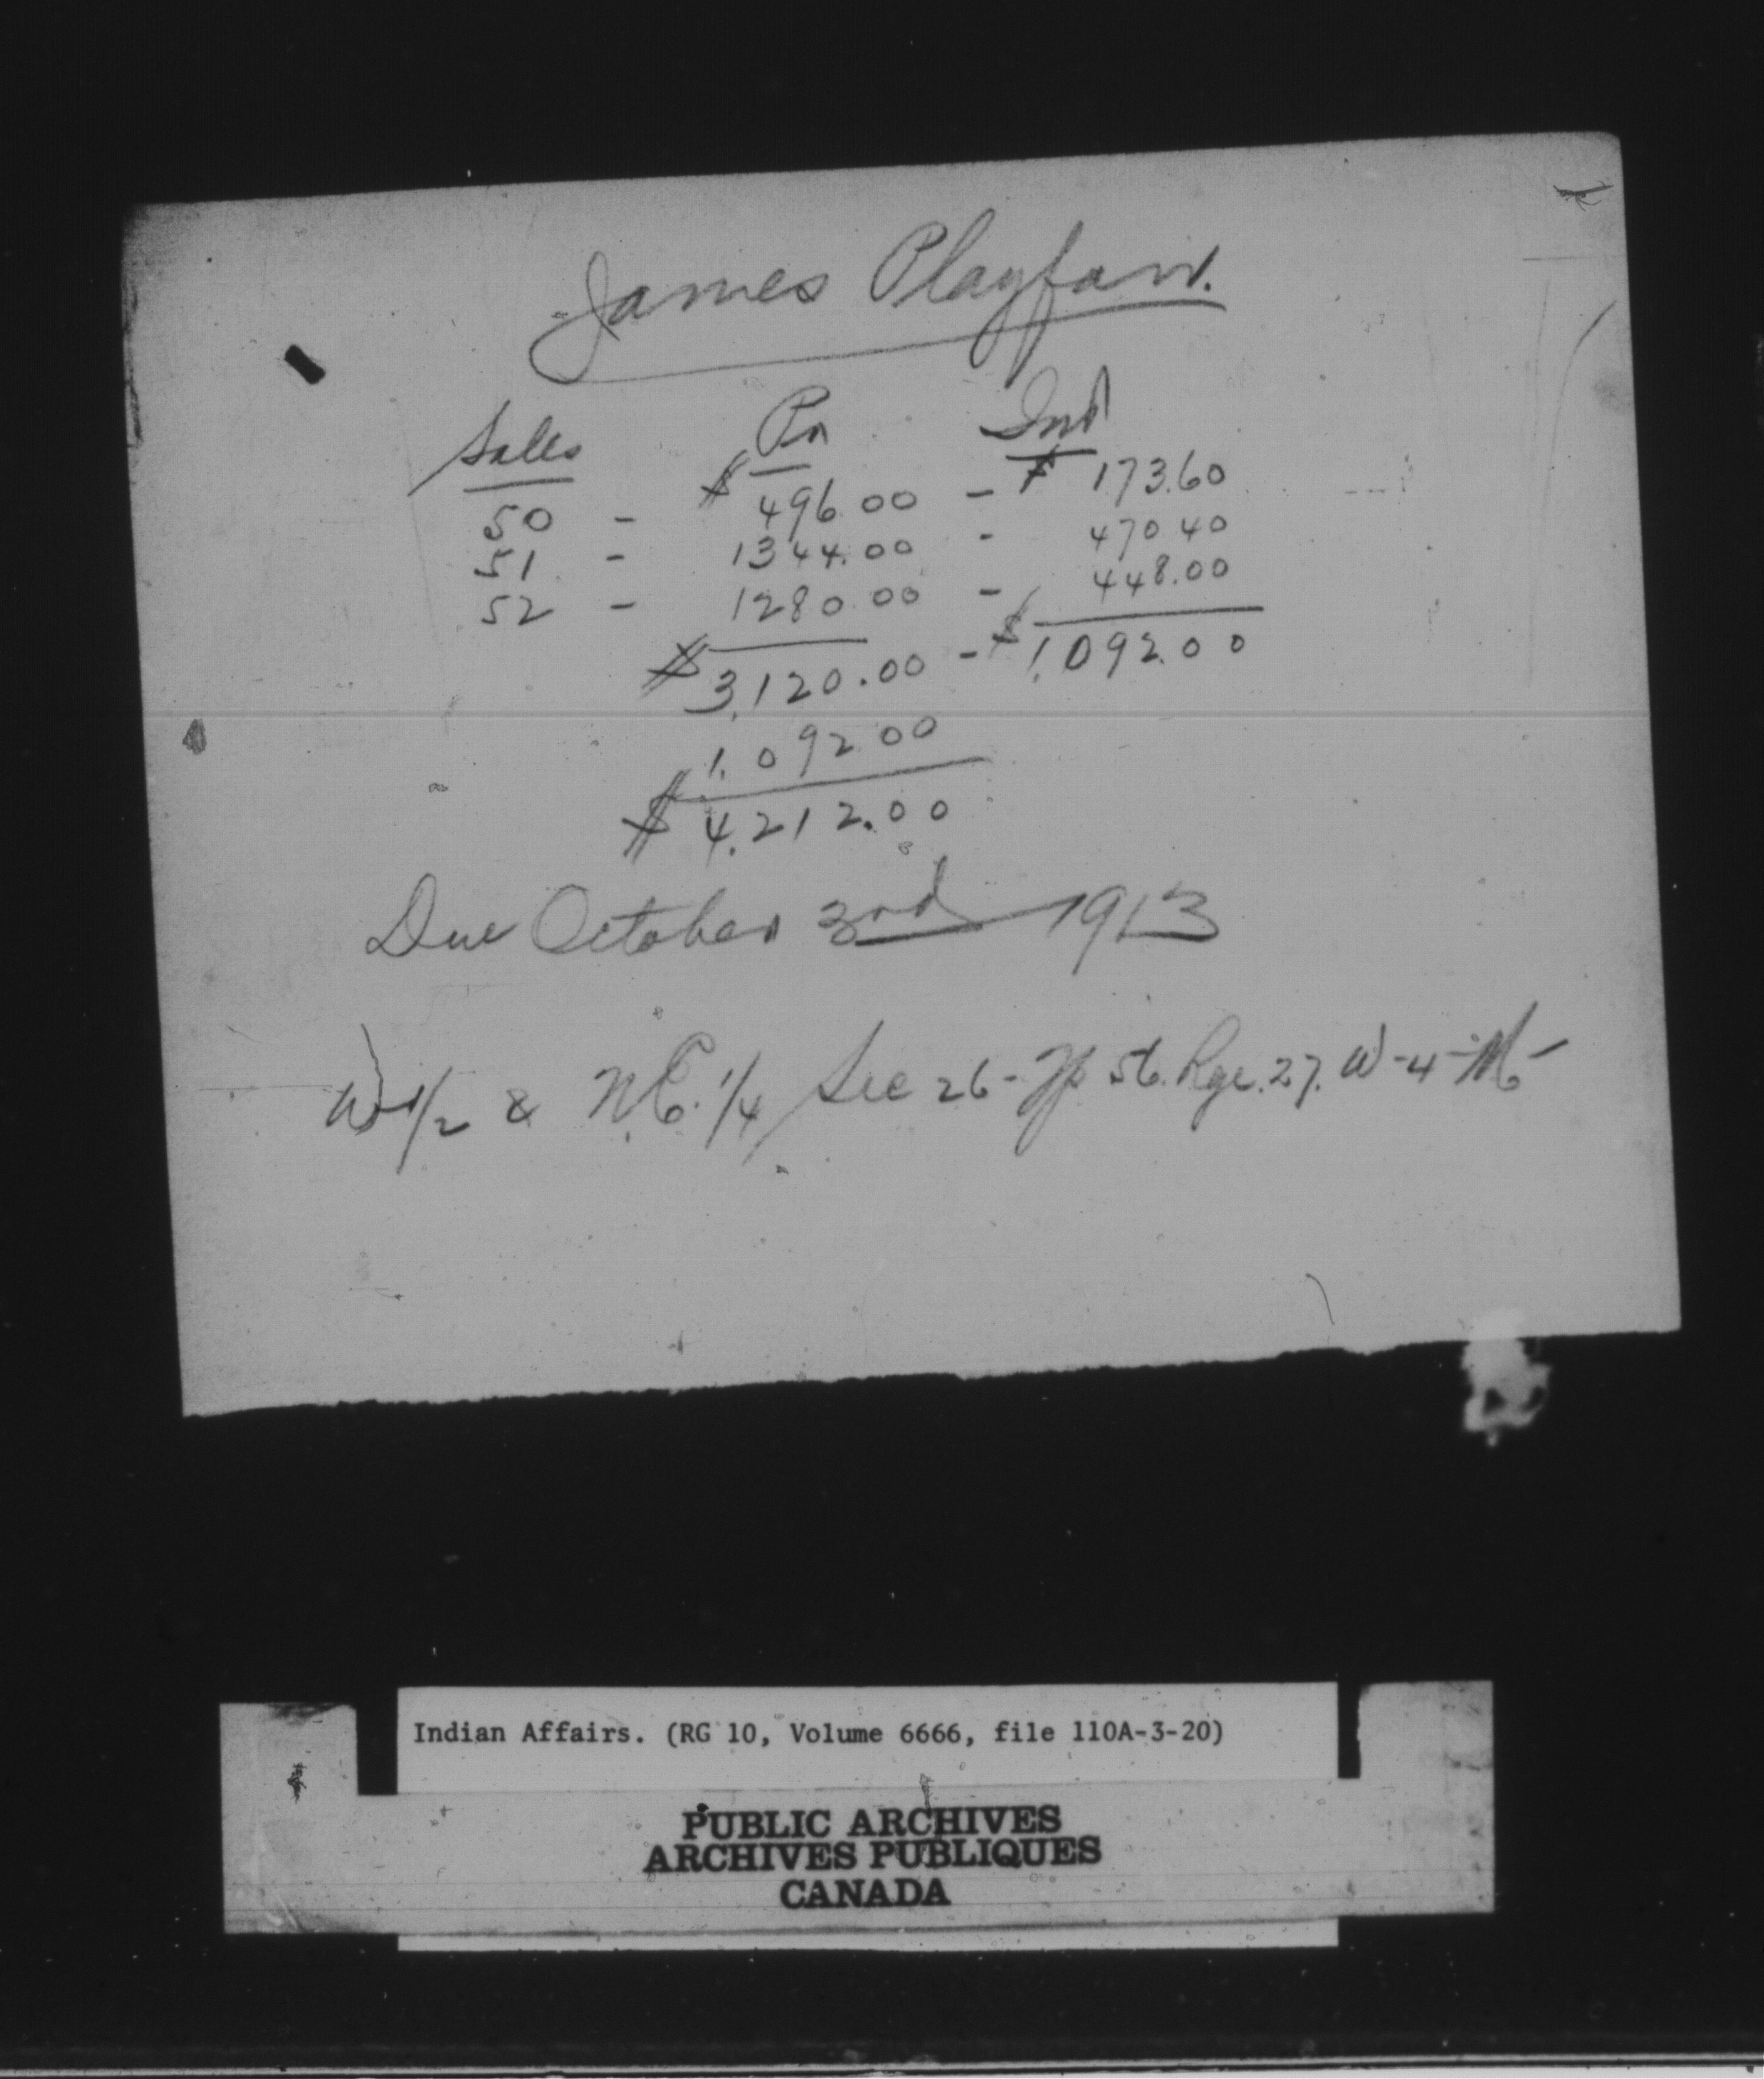 James Playfair.
Sales Pr Int
50 - $ 496.00 - $ 173.60
51 - 1344.00 - 470 40
52 - 1280.00 - 448.00
$ 3,120.00 - $ 1,092.00
1,092 00
$ 4,212.00
Due October 3rd 1913
W 1/2 & N.E. 1/4 Sec 26 - Tp 56. Rge. 27. W-4-M-
Indian Affairs. (RG 10, Volume 6666, file 110A-3-20)
PUBLIC ARCHIVES
ARCHIVES PUBLIQUES
CANADA